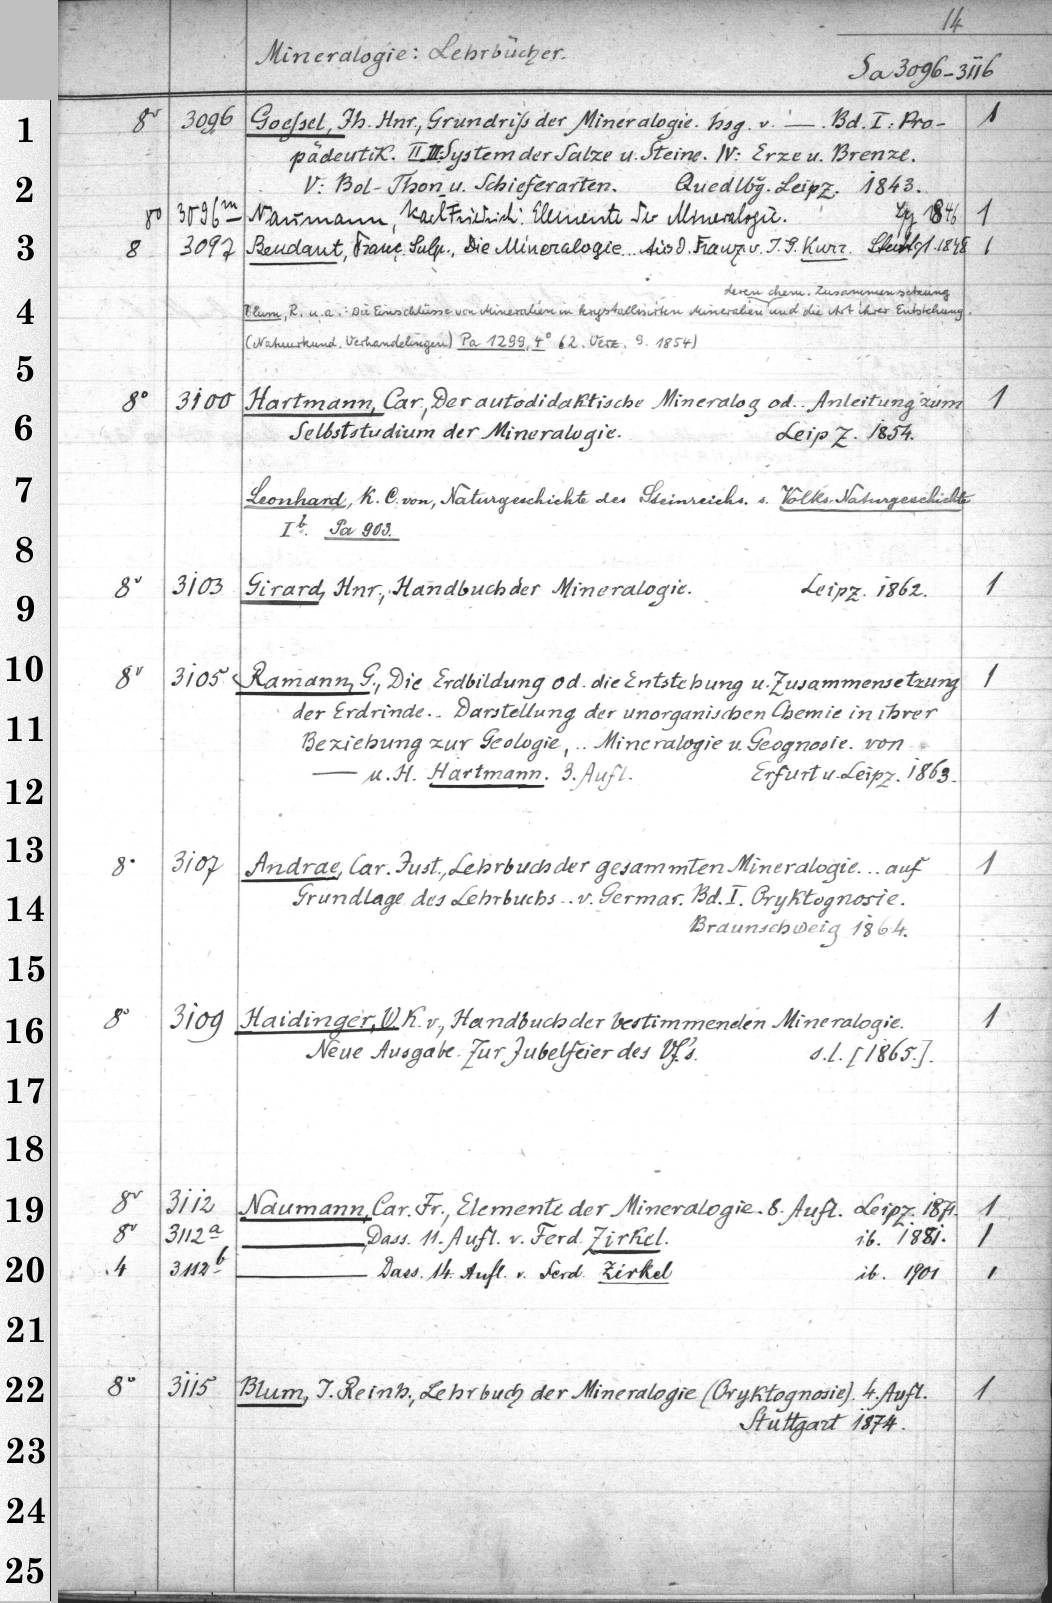 14
Mineralogie: Lehrbücher.
Sa 3096-3116
1
8° 3096 Goessel, Jh. Hnr., Grundriß der Mineralogie. hsg. v. —. Bd. I: Pro- 1
pädeutik. II III: System der Salze u. Steine. IV: Erze u. Brenze.
2
V: Bol- Thon u. Schieferarten. Quedlbg. Leipz. 1843.
8° 3096m Naumann, Karl Friedrich: Elemente der Mineralogie. Lg 1846 1
3
8 3097 Beudant, Franç. Sulp., Die Mineralogie... Aus d. Franz. v. J. G. Kurr. Stuttg. 1848 1
deren chem. Zusammensetzung
4
Blum, R. u. a.: Die Einschlüsse von Mineralien in krystallisirten Mineralien und die Art ihrer Entstehung.
(Natuurkund. Verhandelingen) Pa 1299, 4° 62. Verz. 9. 1854)
5
8° 3100 Hartmann, Car., Der autodidaktische Mineralog od.. Anleitung zum 1
6
Selbststudium der Mineralogie. Leipz. 1854.
7
Leonhard, K. C. von, Naturgeschichte des Steinreichs. s. Volks-Naturgeschichte
Ib. Pa 903.
8
8° 3103 Girard, Hnr., Handbuch der Mineralogie. Leipz. 1862. 1
9
10
8° 3105 Ramann, G., Die Erdbildung od. die Entstehung u. Zusammensetzung 1
der Erdrinde.. Darstellung der unorganischen Chemie in ihrer
11
Beziehung zur Geologie, .. Mineralogie u. Geognosie. von
— u. H. Hartmann. 3. Aufl. Erfurt u. Leipz. 1863.
12
13
8° 3107 Andrae, Car. Just., Lehrbuch der gesammten Mineralogie... auf 1
14
Grundlage des Lehrbuchs.. v. Germar. Bd. I. Oryktognosie.
Braunschweig 1864.
15
8° 3109 Haidinger, W. K. v., Handbuch der bestimmenden Mineralogie. 1
16
Neue Ausgabe. Zur Jubelfeier des Vf's. s. l. [1865.].
17
18
8° 3112 Naumann, Car. Fr., Elemente der Mineralogie. 8. Aufl. Leipz. 1871. 1
19
8° 3112a — Dass. 11. Aufl. v. Ferd. Zirkel. ib. 1881. 1
20
4 3112b — Dass. 14. Aufl. v. Ferd. Zirkel ib. 1901 1
21
22
8° 3115 Blum, J. Reinh., Lehrbuch der Mineralogie (Oryktognosie). 4. Aufl. 1
Stuttgart 1874.
23
24
25